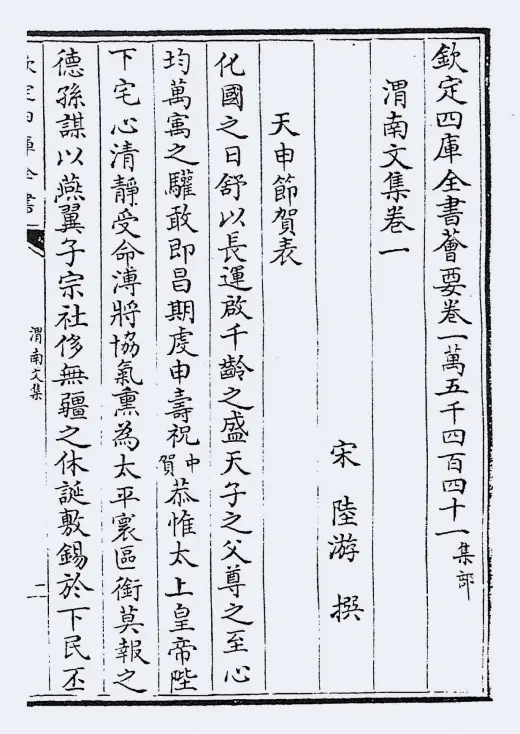 欽定四庫全書薈要卷一萬五千四百四十一 集部
渭南文集卷一
宋 陸游 撰
天申節賀表
化國之日舒以長運啟千齡之盛天子之父尊之至心
均萬㝢之驩敢即昌期虔申壽祝中賀恭惟太上皇帝陛
下宅心清靜受命溥將協氣熏為太平寰區銜莫報之
德孫謀以燕翼子宗社侈無疆之休誕敷錫於下民丕
欽定四庫全書
渭南文集
二